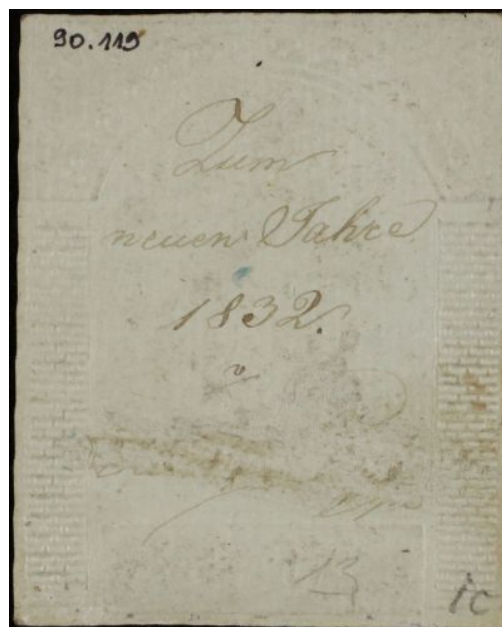 90.119
Zum
neuen Jahre
1832.
v
13
1c